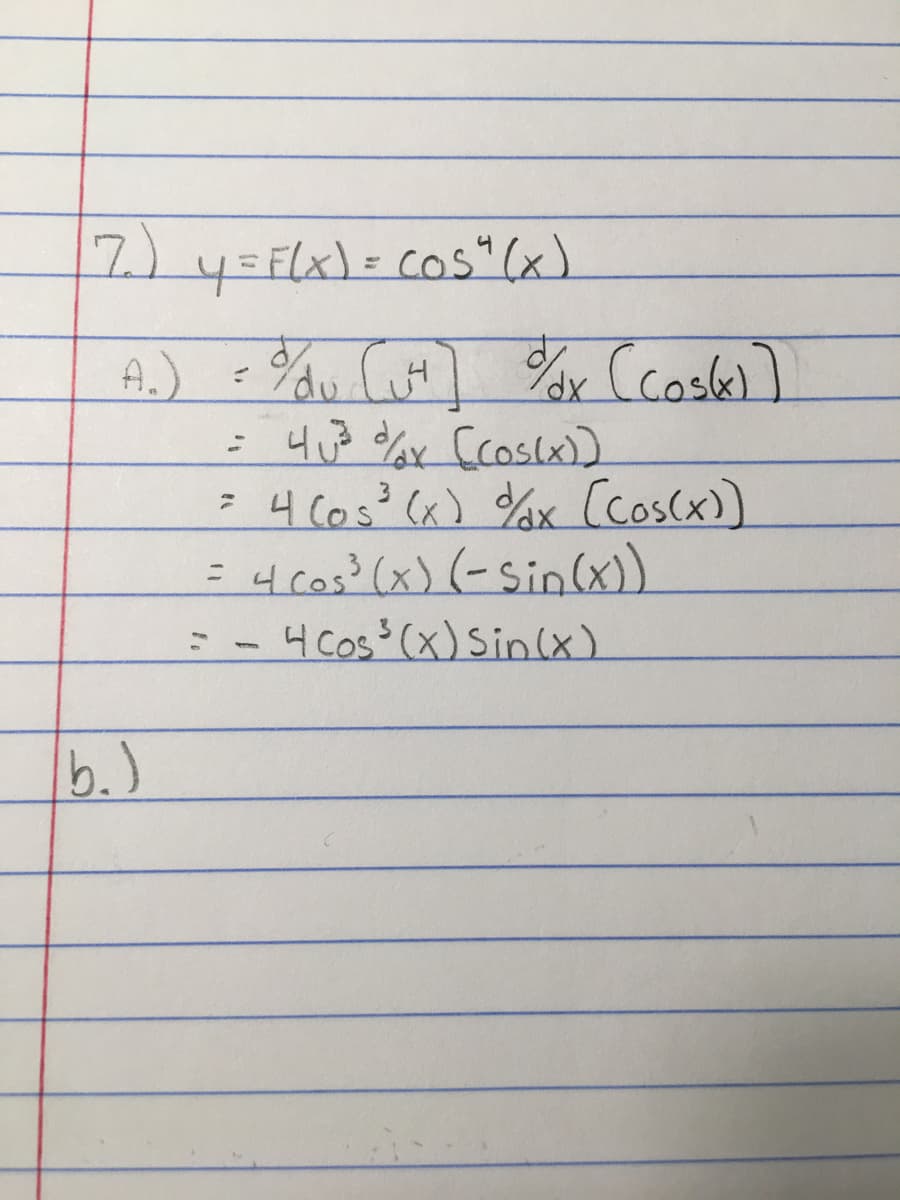 7.) y=F(x) = cos⁴(x)
A.) = d/du [u⁴] d/dx [cos(x)]
= 4u³ d/dx [cos(x)]
= 4 cos³ (x) d/dx [cos(x)]
= 4 cos³ (x) (-sin(x))
= - 4 cos³ (x) sin(x)
b.)